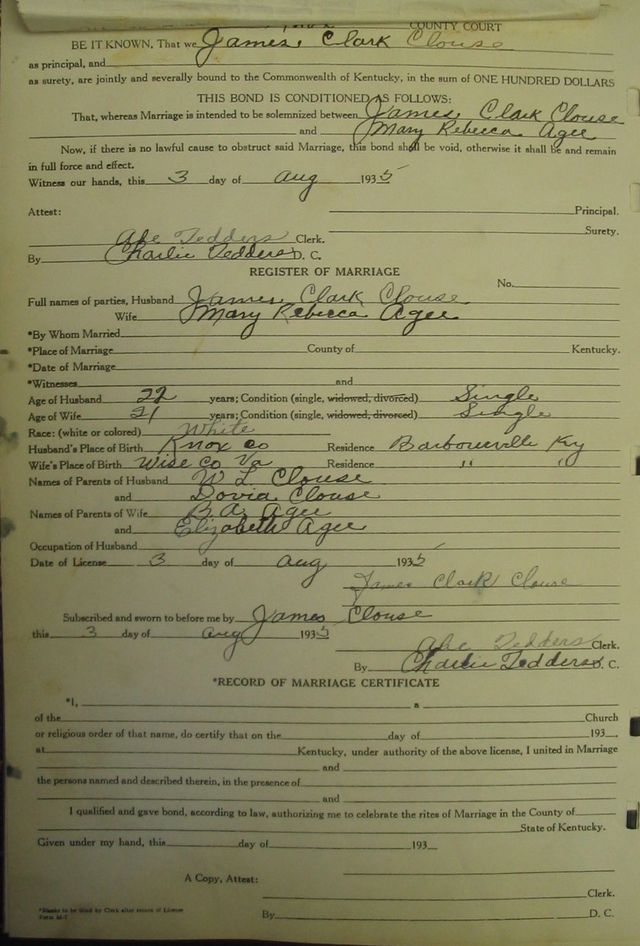 COUNTY COURT
BE IT KNOWN, That we James Clark Clouse
as principal, and
as surety, are jointly and severally bound to the Commonwealth of Kentucky, in the sum of ONE HUNDRED DOLLARS
THIS BOND IS CONDITIONED AS FOLLOWS:
That, whereas Marriage is intended to be solemnized between James Clark Clouse
and Mary Rebecca Agee
Now, if there is no lawful cause to obstruct said Marriage, this bond shall be void, otherwise it shall be and remain
in full force and effect.
Witness our hands, this 3 day of Aug 1935
Attest: Principal.
Surety.
Abe Tedders Clerk.
By Charlie Tedders D. C.
REGISTER OF MARRIAGE
No.
Full names of parties, Husband James Clark Clouse
Wife Mary Rebecca Agee
*By Whom Married
*Place of Marriage County of Kentucky.
*Date of Marriage
*Witnesses and
Age of Husband 22 years; Condition (single, widowed, divorced) Single
Age of Wife 21 years; Condition (single, widowed, divorced) Single
Race: (white or colored) White
Husband's Place of Birth Knox Co Residence Barbourville Ky
Wife's Place of Birth Wise Co Va Residence " "
Names of Parents of Husband W L Clouse
and Dovia Clouse
Names of Parents of Wife B.A. Agee
and Elizabeth Agee
Occupation of Husband
Date of License 3 day of Aug 1935
James Clark Clouse
Subscribed and sworn to before me by James Clouse
this 3 day of Aug 1935
Abe Tedders Clerk.
By Charlie Tedders D. C.
*RECORD OF MARRIAGE CERTIFICATE
*I, a
of the Church
or religious order of that name, do certify that on the day of 193
at Kentucky, under authority of the above license, I united in Marriage
and
the persons named and described therein, in the presence of
and
I qualified and gave bond, according to law, authorizing me to celebrate the rites of Marriage in the County of
State of Kentucky.
Given under my hand, this day of 193
A Copy, Attest:
Clerk.
*Blanks to be filled by Clerk after return of License
Form M-7
By D. C.